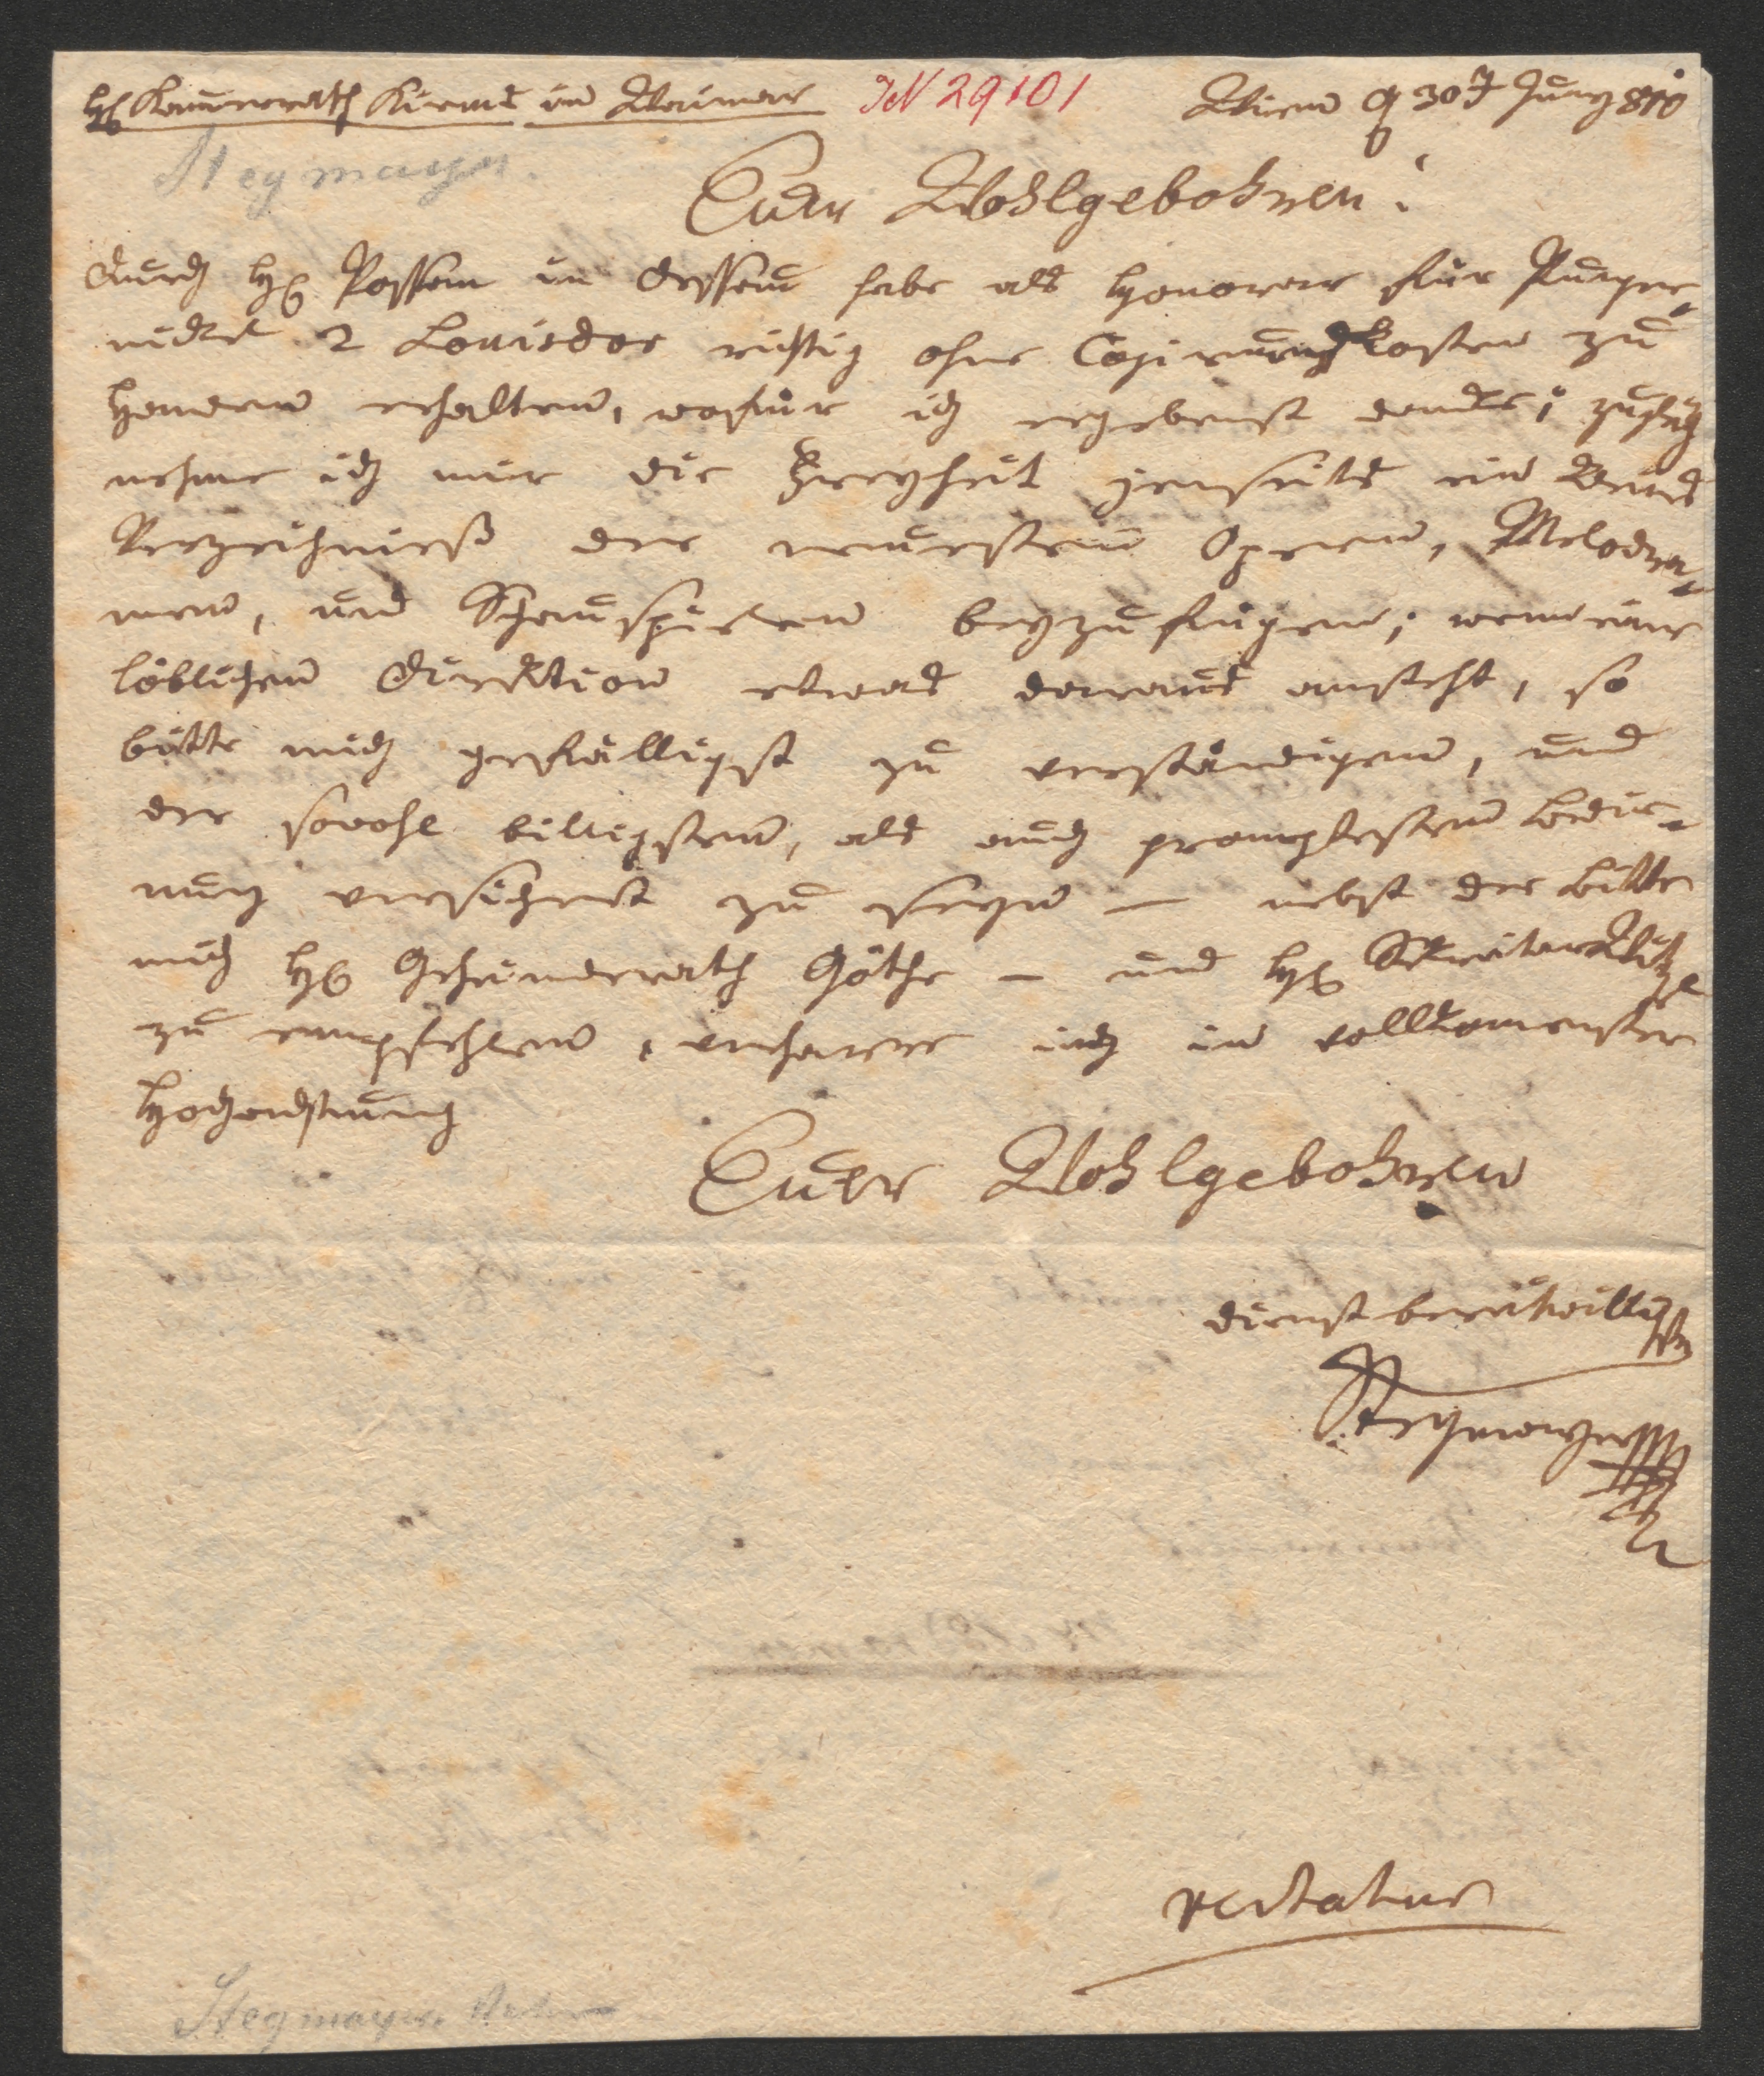 H Kammerrath Kirms in Weimar IN 29101 Wien d 30t Juny 810
Stegmayer.
Euer Wohlgebohren!
Durch H Possem in Dessau habe als Honorar für Pumper-
nickel 2 Louisdor richtig ohne Copirungskosten zu
Handen erhalten, wofür ich ergebenst danke; zugleich
nehme ich mir die Freyheit jenseits ein
Verzeichniß der neuesten Opern, Melodra-
men, und Schauspielen beyzufügen; wenn einer
löblichen Direktion etwas daraus ansteht, so
bitte mich gefälligst zu verständigen, und
der sowohl billigsten, als auch promptesten Bedie-
nung versichert zu seyn — nebst der Bitte
mich H Geheimderath Göthe — und H Sekretair
zu empfehlen, verharre ich in vollkommenster
Hochachtung
Euer Wohlgebohren
dienstbereitwilligster
Stegmayer
verte
Stegmayer